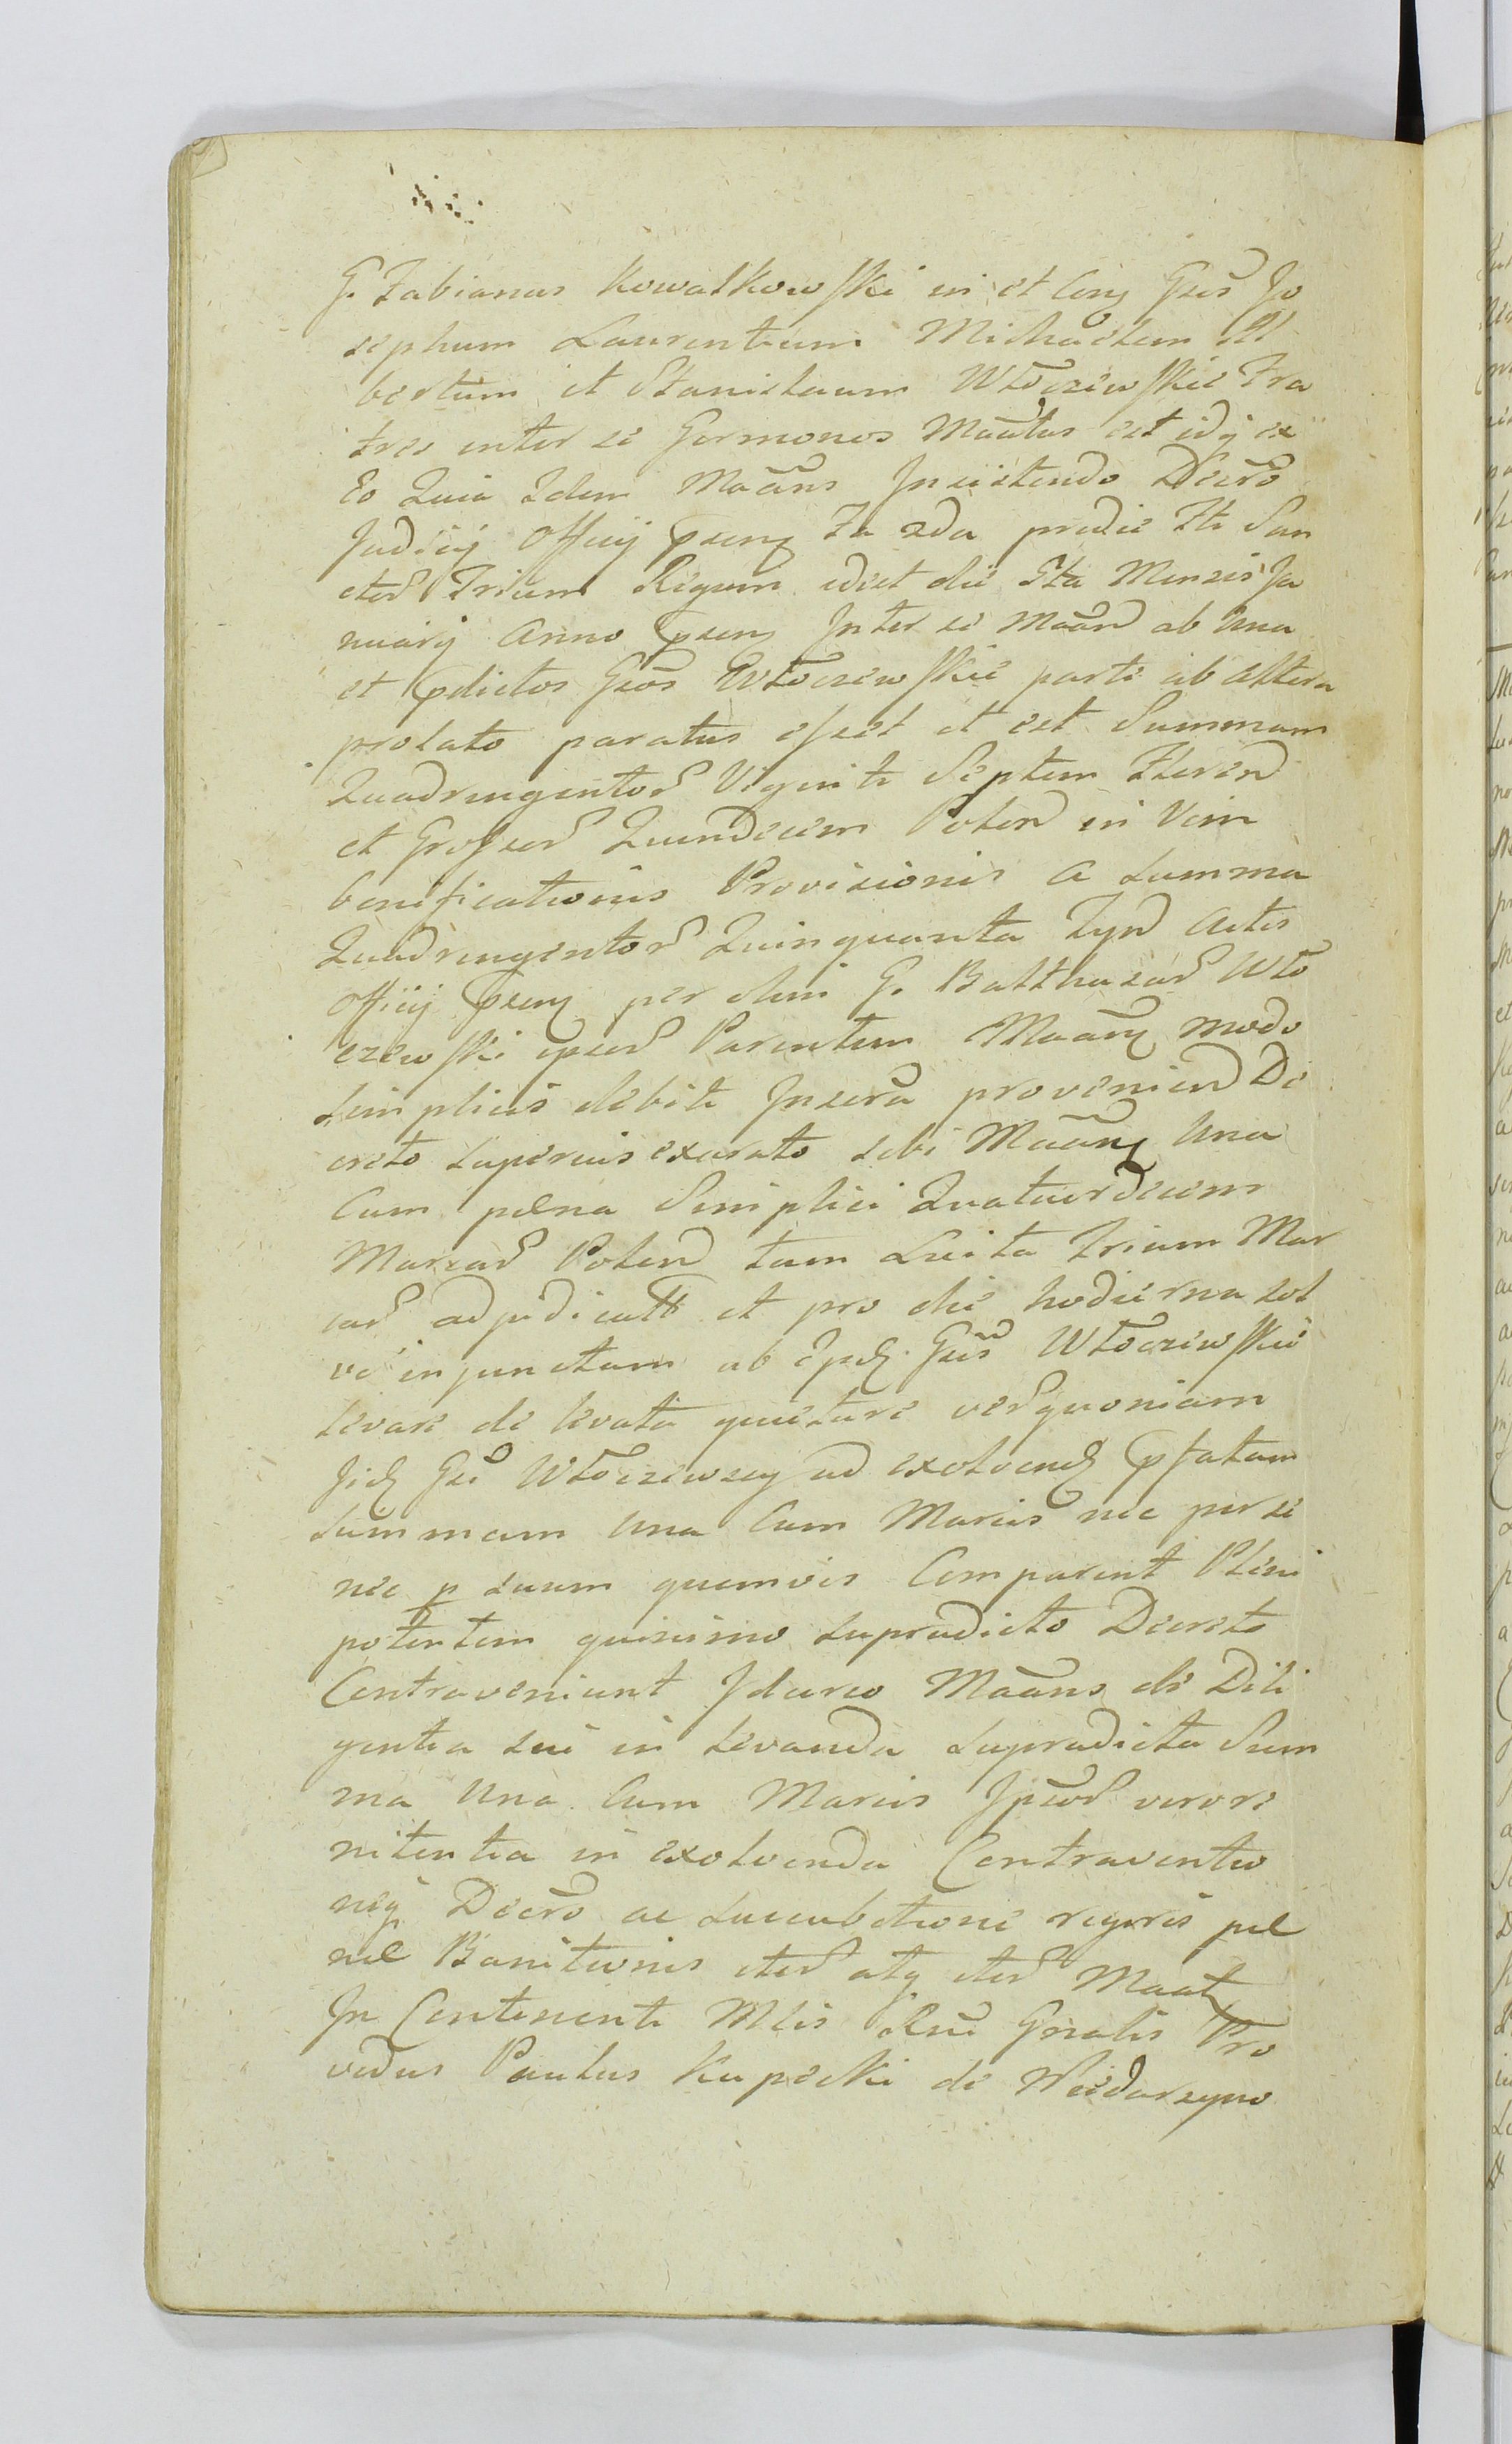 G. Fabianus Kowalkowski in et Cong Gsos Jo
sephum Laurentium Michaelem Al
bertum et Stanislaum Włoczewskie Fra
tres inter se Germonos Maatus est idq ex
Eo Quia Idem Maans Insistendo Decro
Judicij Officij pseng Fa 2da pridie Fti San
ctor Trium Regum idest die 5ta Mensis Ja
nuarij Anno pseng Inter se Maan ab Una
et pdictos Gsos Włoczewskie parte ab Altera
prolato paratus esset et est Summam
Quadringentor Viginti Septem Floren
et Grossor Quindecem Polon in Vim
bonificationis Provisionis a Summa
Quadringentor Quinquanta Tyn Actis
Officij pseng per olim G. Balthasar Wło
czewski ipsor Parentem Maang modo
Simplicis debiti Inscra provenien De
creto Superius exarato sibi Maang Una
Cum pœna Simplici Quatuordecem
Marcar Polon tum Luita trium Mar
car adjudicatt et pro die hodierna sol
vi injunctam ab Ipsd Gsis Włoczewskie
levare de levata quietare ver quoniam
Jid Gsi Włoczewscy ad exolvend pfatam
Summam Una Cum Marcis nec per se
nec p suum quemvis Comparent Pleni
potentem quinimo Supradicto Decreto
Contraveniunt Idarco Maans de Dili
gentia sui in levanda Supradicta Sum
ma Una Cum Marcis Ipsor vero re
nitentia in exolvenda Contraventio
neq Decro ac Succubitione rigoris pœ
næ Banitionis iter atq iter Maat
In Continenti Mlis Rni Gnalis Pro
vidus Paulus Kupecki de Niedarzyno